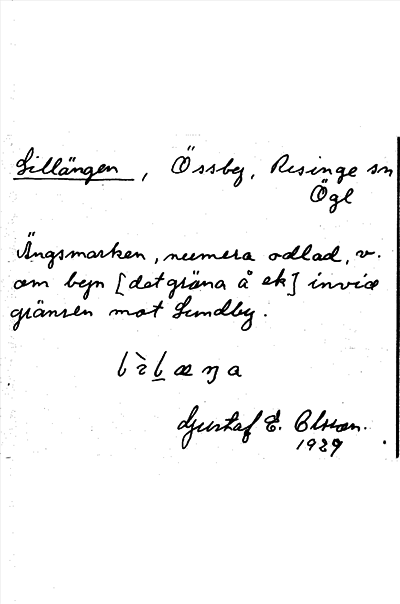 Lillängen, Össby, Risinge sn
Ögl
Ängsmarken, numera odlad, v.
om byn [det gräna å ek] invid
gränsen mot Lundby.
Gustaf E. Olsson.
1929